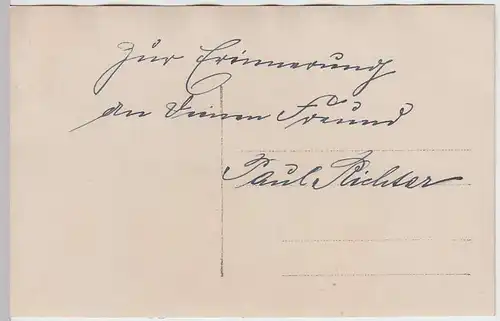 Zur Erinnerung
an Deinen Freund
Paul Richter